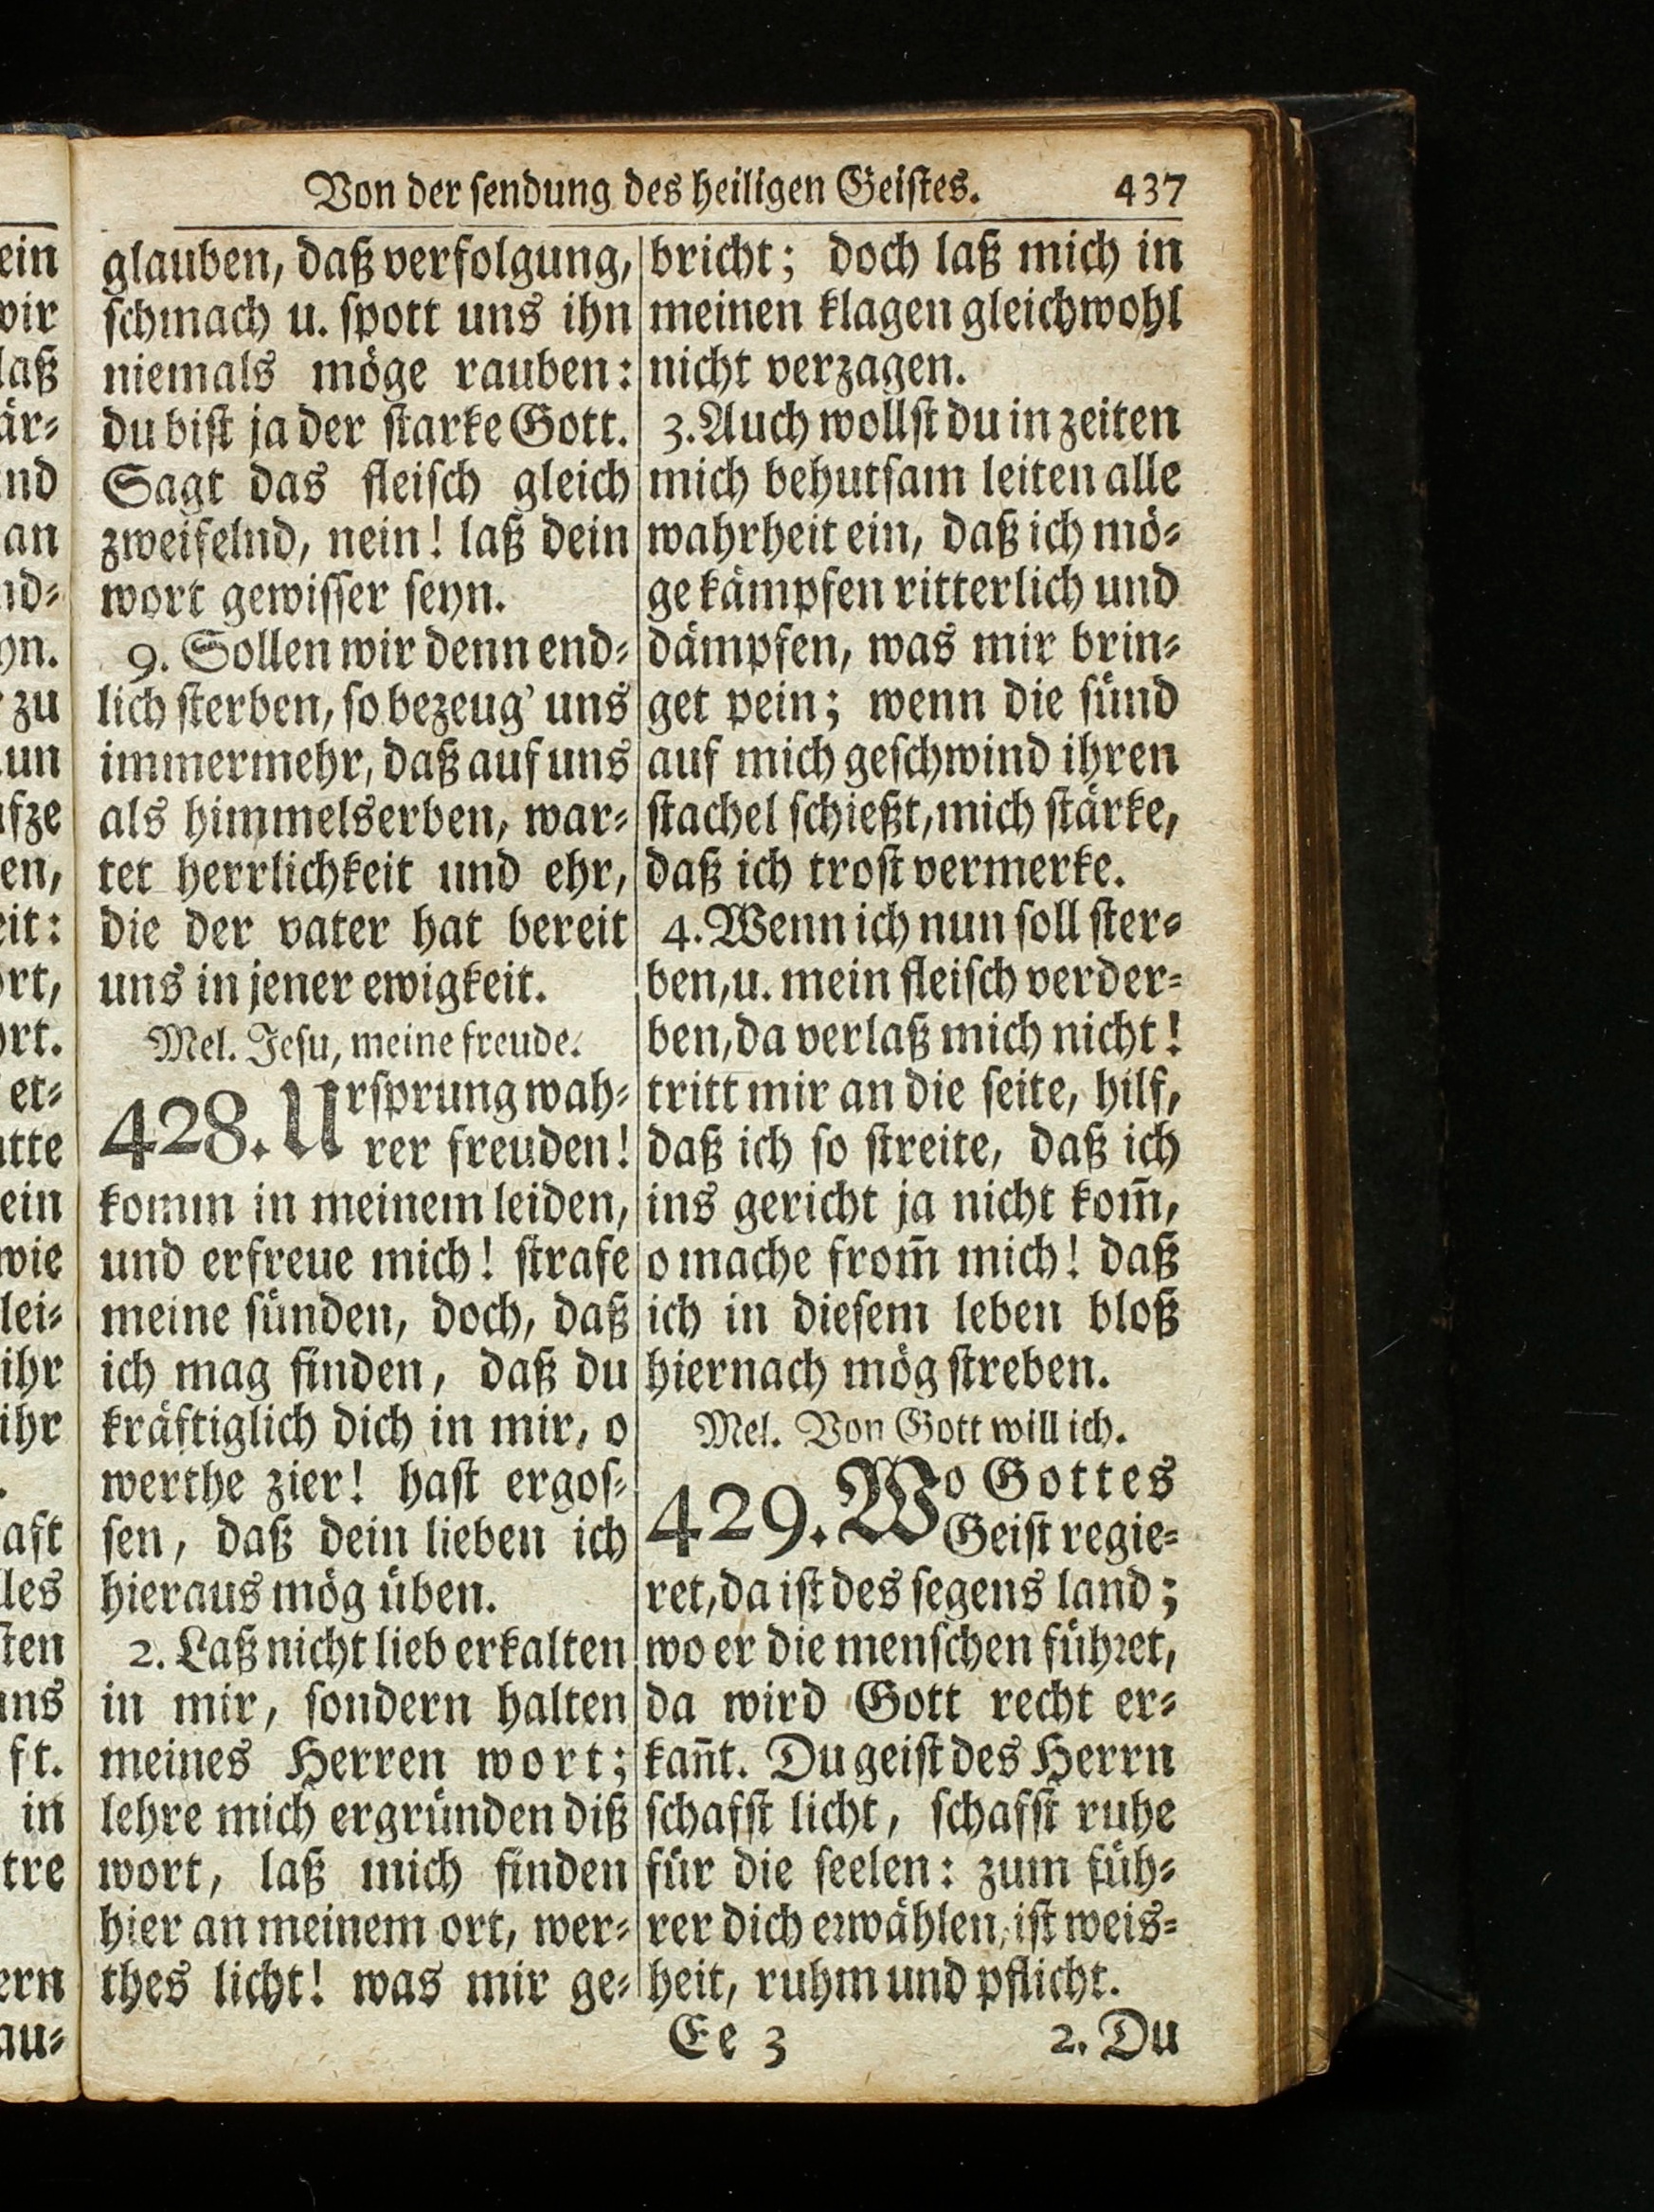 Von der sendung des heiligen Geistes. 437
glauben, daß verfolgung,
schmach u. spott uns ihn
niemals möge rauben:
du bist ja der starke Gott.
Sagt das fleisch gleich
zweifelnd, nein! laß dein
wort gewisser seyn.
9. Sollen wir denn end-
lich sterben, so bezeug' uns
immermehr, daß auf uns
als himmelserben, war-
tet herrlichkeit und ehr,
die der vater hat bereit
uns in jener ewigkeit.
Mel. Jesu, meine freude.
428. Ursprung wah-
rer freuden!
komm in meinem leiden,
und erfreue mich! strafe
meine sünden, doch, daß
ich mag finden, daß du
kräftiglich dich in mir, o
werthe zier! hast ergos-
sen, daß dein lieben ich
hieraus mög üben.
2. Laß nicht lieb erkalten
in mir, sondern halten
meines Herren wort;
lehre mich ergründen diß
wort, laß mich finden
hier an meinem ort, wer-
thes licht! was mir ge-
bricht; doch laß mich in
meinen klagen gleichwohl
nicht verzagen.
3. Auch wollst du in zeiten
mich behutsam leiten alle
wahrheit ein, daß ich mö-
ge kämpfen ritterlich und
dämpfen, was mir brin-
get pein; wenn die sünd
auf mich geschwind ihren
stachel schießt, mich stärke,
daß ich trost vermerke.
4. Wenn ich nun soll ster-
ben, u. mein fleisch verder-
ben, da verlaß mich nicht!
tritt mir an die seite, hilf,
daß ich so streite, daß ich
ins gericht ja nicht kom̄,
o mache from̄ mich! daß
ich in diesem leben bloß
hiernach mög streben.
Mel. Von Gott will ich.
429. Wo Gottes
Geist regie-
ret, da ist des segens land;
wo er die menschen führet,
da wird Gott recht er-
kan̄t. Du geist des Herrn
schafst licht, schafst ruhe
für die seelen: zum füh-
rer dich erwählen, ist weis-
heit, ruhm und pflicht.
Ee 3 2. Du